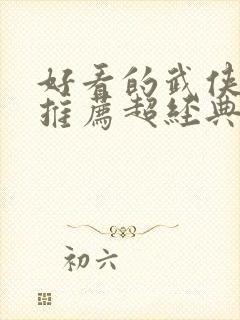 好看的武侠
推薦超經典
初六